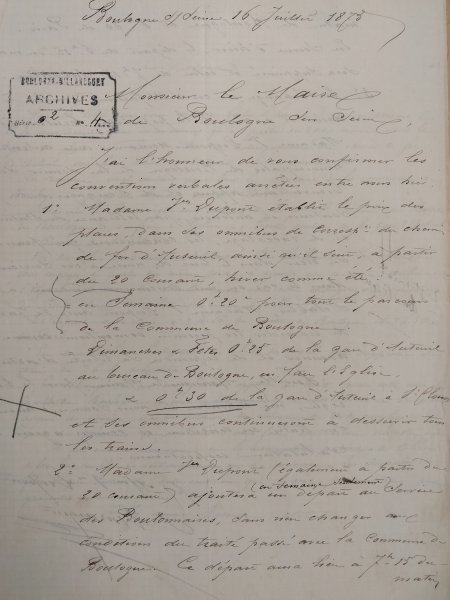 Boulogne s/Seine 16 Juillet 1875
BOULOGNE-BILLANCOURT
ARCHIVES
Série O2 No
Monsieur le Maire
de Boulogne sur Seine,
J'ai l'honneur de vous confirmer les
conventions verbales arrêtées entre nous hier.
1° Madame Vve Dupont établit le prix des
places, dans ses omnibus de corresp. du chemin
de fer d'Auteuil, ainsi qu'il suit, à partir
du 20 courant, hiver comme été
en Semaine 0f20c pour tout le parcours
de la Commune de Boulogne
Dimanches & Fêtes 0f25 de la gare d'Auteuil
au bureau de Boulogne, en face l'Eglise.
& 0f30 de la gare d'Auteuil à St Cloud
et ses omnibus continueront à desservir tous
les trains.
2° Madame Vve Dupont (également à partir du
20 courant) (en semaine seulement) ajoutera un départ au Service
des Boulonnaises, sans rien changer aux
conditions du traité passé avec la Commune de
Boulogne. Ce départ aura lieu à 7h 15 du
matin,